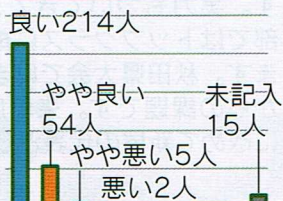 良い214人
やや良い
54人
未記入
15人
やや悪い5人
悪い2人